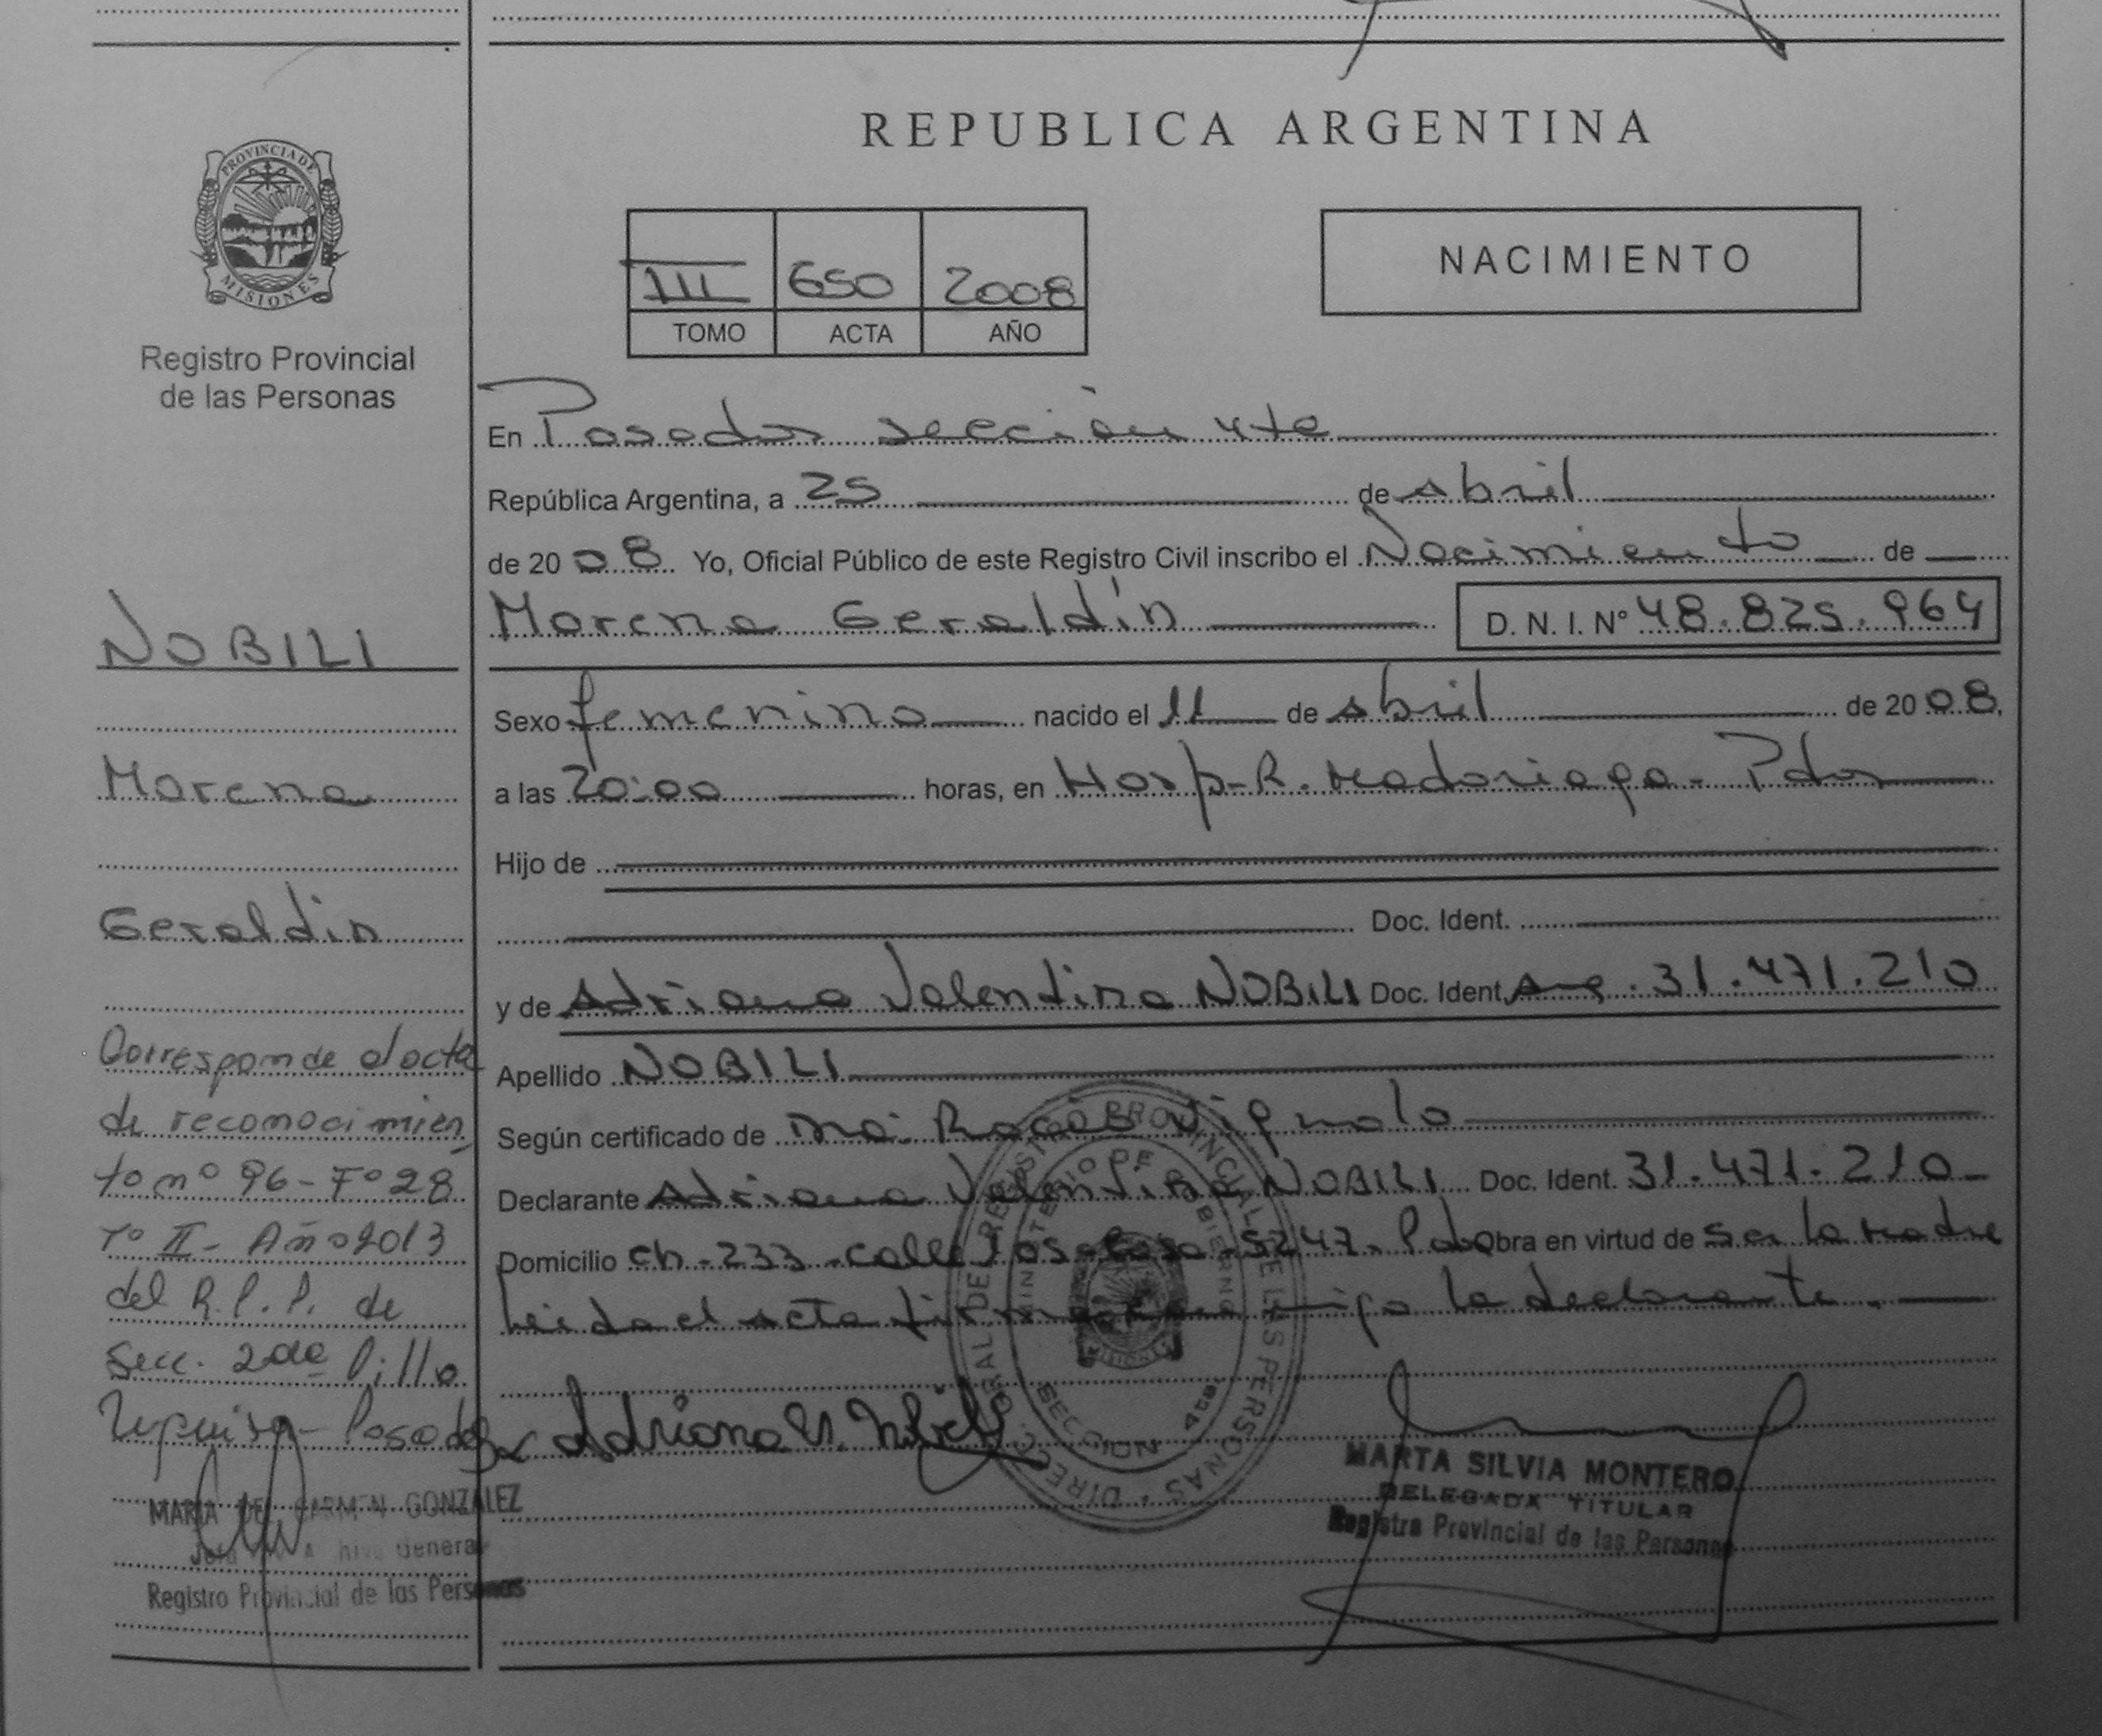 REPUBLICA ARGENTINA
PROVINCIA DE
MISIONES
Registro Provincial
de las Personas
III 650 2008
TOMO ACTA AÑO
NACIMIENTO
En Posadas sección 4ta
República Argentina, a 25 de abril
de 2008. Yo, Oficial Público de este Registro Civil inscribo el Nacimiento de
Morena Geraldín D. N. I. Nº 48.825.964
Sexo femenino nacido el 11 de abril de 2008.
a las 20:00 horas, en Hosp-R. Madariaga- Pdas
Hijo de
Doc. Ident.
y de Adriana Valentina NOBILI Doc. Ident. Arg. 31.471.210
Apellido NOBILI
Según certificado de Ma. Rocío Vignolo
Declarante Adriana Valentina NOBILI Doc. Ident. 31.471.210
Domicilio Ch-233-calle 5247. Obra en virtud de Ser la Madre
Leida el acta firma conmigo la declarante.
NOBILI
Morena
Geraldin
Corresponde al acta
de reconocimien
to nº 96-Fº28
Tº II- Año 2013
del R.P.P. de
Secc. 2da Villa
Urquiza- Posadas
Adriana V. Nobili
MARIA DEL CARMEN GONZALEZ
Archivo General
Registro Provincial de las Personas
DIREC. GRAL DE REGISTRO PROVINCIAL DE LAS PERSONAS
MINISTERIO DE GOBIERNO
SECCION 4ta.
MARTA SILVIA MONTERO
DELEGADA TITULAR
Registro Provincial de las Personas